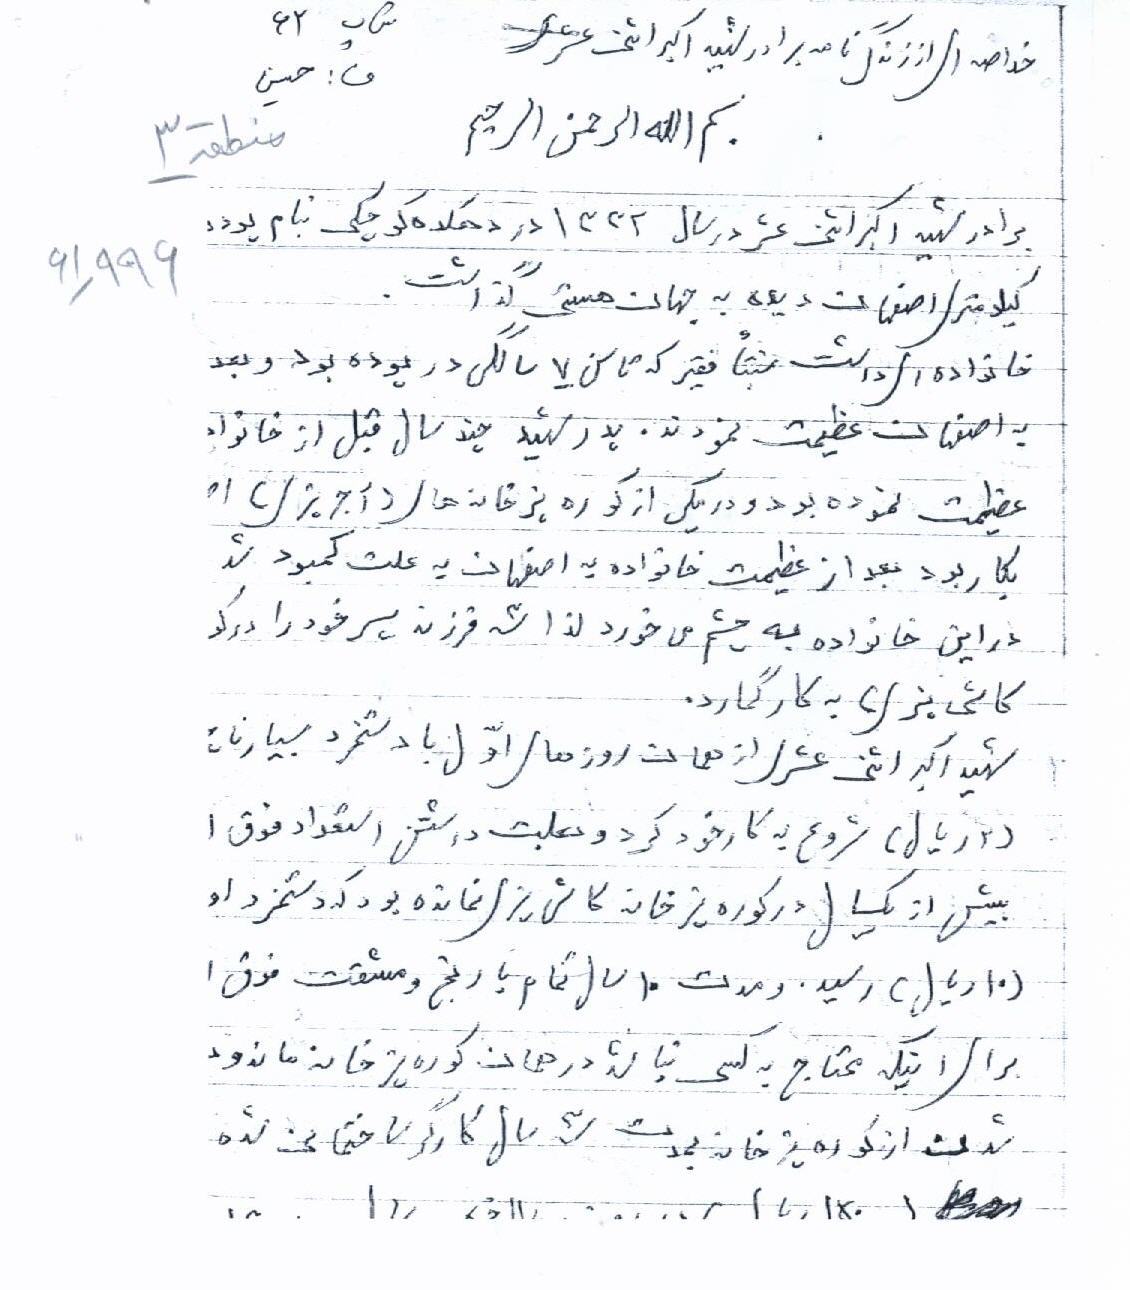 خلاصه ای از زندگی نامه برادر شهید اکبر اثنی عشری
شاپ ۶۲
ف: حسین
بسم الله الرحمن الرحیم
منطقه ۳
۶۱٫۹۹۶
برادر شهید اکبر اثنی عشر در سال ۱۳۳۲ در دهکده کوچکی بنام یوده
کیلومتری اصفهان دیده به جهان هستی گذاشت.
خانواده ای داشت نسبتاً فقیر که تا سن ۷ سالگی در یوده بود و بعد
به اصفهان عظیمت نمودند. پدر شهید چند سال قبل از خانواد
عظیمت نموده بود و در یکی از کوره پزخانه های (آجرپزی) اص
بکار بود بعد از عظیمت خانواده به اصفهان به علت کمبود شد
در این خانواده به چشم می خورد لذا فرزند پسر خود را در کو
کاشی پزی) به کار گمارد.
شهید اکبر اثنی عشری از همان روزهای اوّل با دستمزد بسیار ناچ
(۲ ریال) شروع به کار خود کرد و بعلت داشتن استعداد فوق ا
بیش از یکسال در کوره پزخانه کاشی پزی نمانده بود که دستمزد او
(۱۰ ریال) رسید. و مدت ۱۰ سال تمام با رنج و مشقت فوق ا
برای اینکه محتاج به کسی نباشد در همان کوره پزخانه ماند و د
شدن از کوره پزخانه بمدت سال کارگر ساختمانی شده